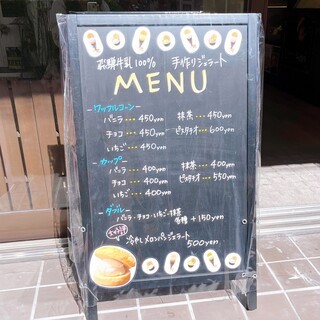 飛騨牛乳100% 手作りジェラート
MENU
ワッフルコーン
バニラ・・・450yen 抹茶・・・450yen
チョコ・・・450yen ピスタチオ・・・600yen
いちご・・・450yen
カップ
バニラ・・・400yen 抹茶・・・400yen
チョコ・・・400yen ピスタチオ・・・550yen
いちご・・・400yen
ダブル
バニラ・チョコ・いちご・抹茶
各種 +150yen
冷やしメロンパンジェラート
500yen